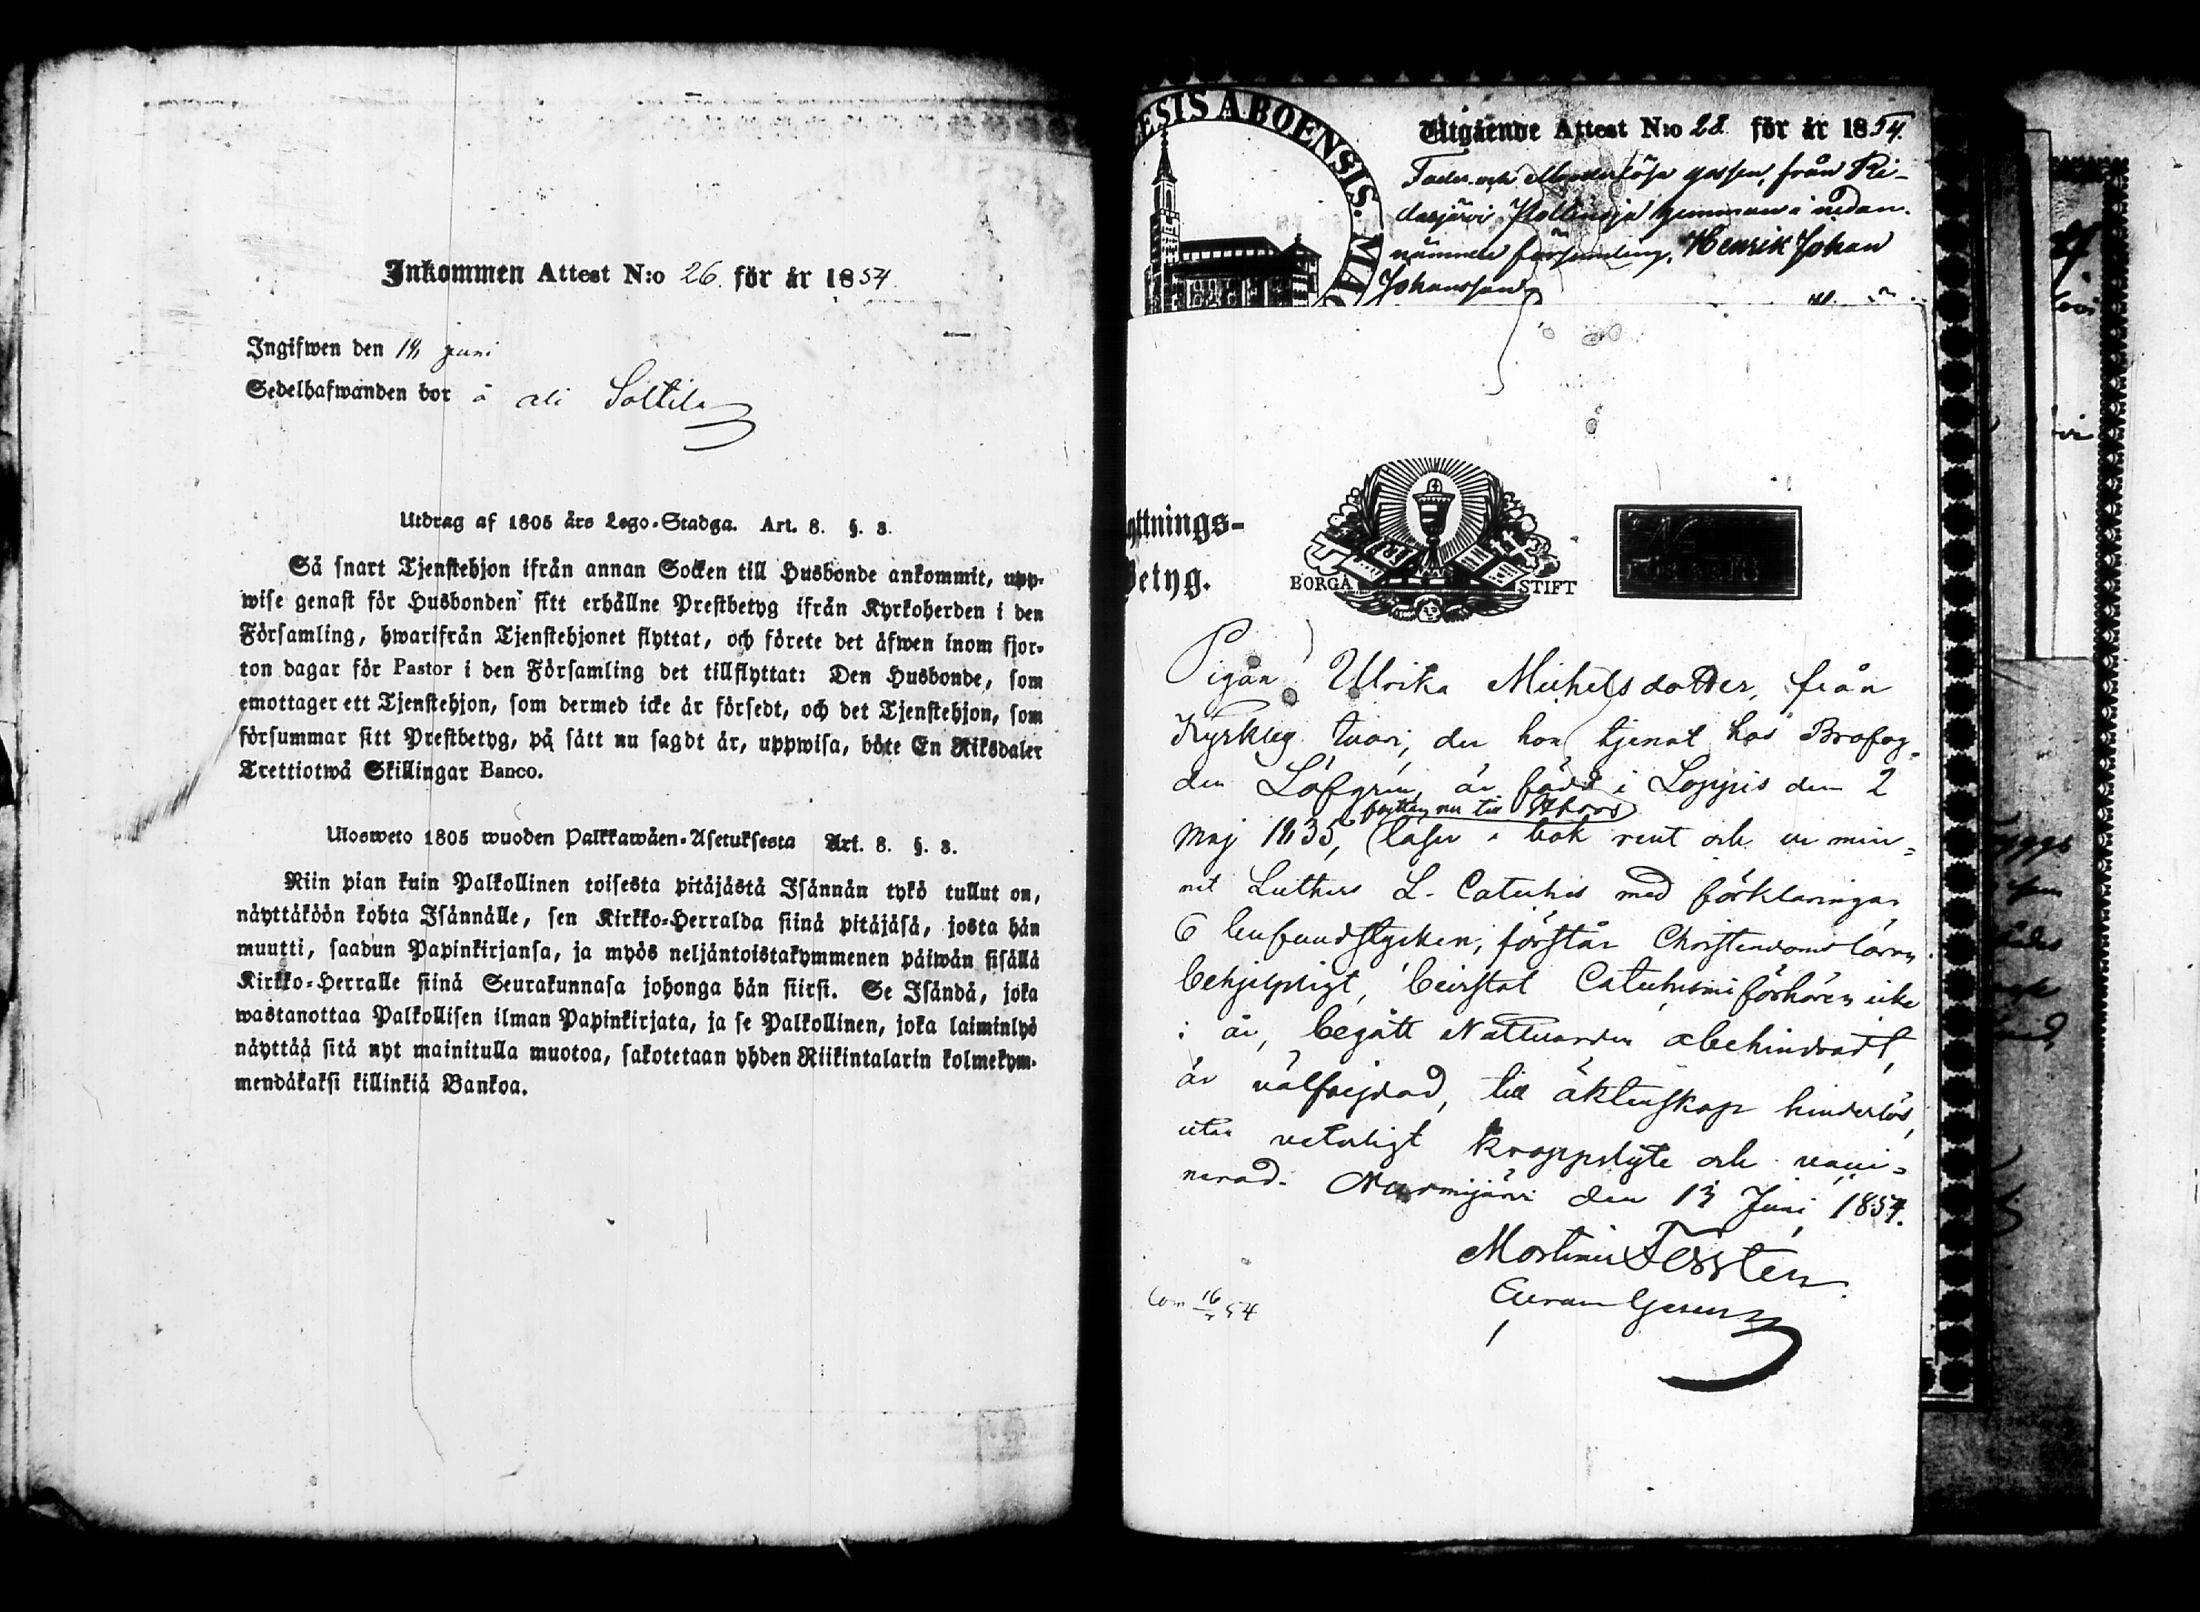 Inkommen Attest N:o 26. för år 1854.
Ingifwen den 14 Juni
Sedelhafwanden bor å Ali Solttila
Utdrag af 1805 års Lego-Stadga. Art. 8. §. 3.
Så snart Tjenstehjon ifrån annan Socken till Husbonde ankommit, upp-
wise genast för Husbonden sitt erhållne Prestbetyg ifrån Kyrkoherden i den
Församling, hwarifrån Tjenstehjonet flyttat, och förete det äfwen inom fjor-
ton dagar för Pastor i den Församling det tillflyttat: Den Husbonde, som
emottager ett Tjenstehjon, som dermed icke är försedt, och det Tjenstehjon, som
försummar sitt Prestbetyg, på sätt nu sagdt är, uppwisa, böte En Riksdaler
Trettiotwå Skillingar Banco.
Ulosweto 1805 wuoden Palkkawäen-Asetuksesta Art. 8. §. 3.
Niin pian kuin Palkollinen toisesta pitäjästä Isännän tykö tullut on,
näyttäköön kohta Isännälle, sen Kirkko-Herralda siinä pitäjäsä, josta hän
muutti, saadun Papinkirjansa, ja myös neljäntoistakymmenen päiwän sisällä
Kirkko-Herralle siinä Seurakunnasa johonga hän siirsi. Se Isändä, joka
wastanottaa Palkollisen ilman Papinkirjata, ja se Palkollinen, joka laiminlyö
näyttää sitä nyt mainitulla muotoa, sakotetaan yhden Riikintalarin kolmekym-
mendäkaksi killinkiä Bankoa.
ESIS ABOENSIS. MA
Utgående Attest N:o 28. för år 1854.
Fader och Moderlösa gossen, från Ki-
dasjärvi hemman i nedan-
nämnde församling, Henrik Johan
Johansson
yttnings-
Betyg.
BORGÅ STIFT
Pigan Ulrika Michelsdotter, från
Kyrkeby der hon tjenat hos Brofog-
den Löfgren, är född i Loppis den 2
flyttar nu till
Maj 1835, läser i bok rent och ur min-
net Luthers L. Cateches med förklaringar
6 hufvudstycken, förstår Christendoms läran
behjelpligt, bevistat Catechismi förhören icke
i år, begått Nattvarden obehindradt,
är välfrejdad, till äktenskap hinderlös,
utan veterligt kroppslyte och vacci-
nerad. Nurmijärvi den 13 Juni 1854.
Mortimer Forstén
Com 16/7 54